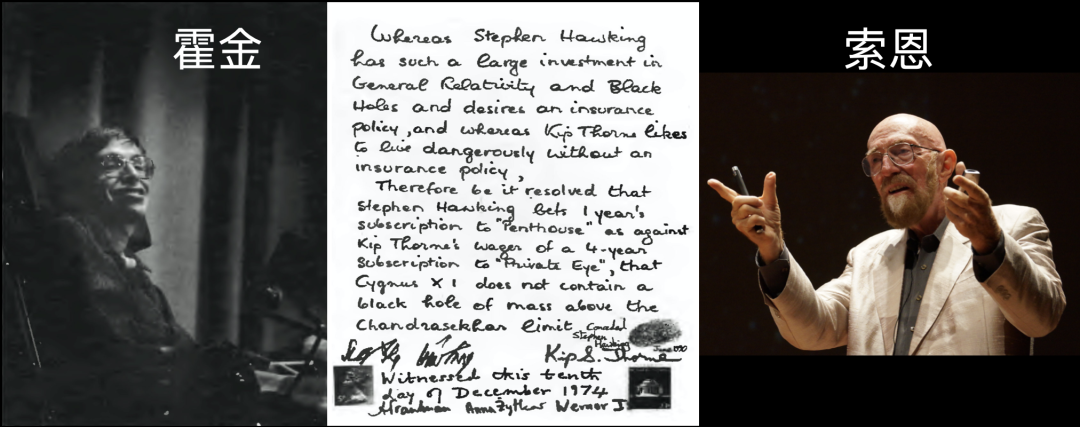 霍金
Whereas Stephen Hawking
has such a large investment in
General Relativity and Black
Holes and desires an insurance
policy, and whereas Kip Thorne likes
to live dangerously without an
insurance policy,
Therefore be it resolved that
Stephen Hawking bets 1 year's
subscription to "Penthouse" as against
Kip Thorne's wager of a 4-year
Subscription to "Private Eye", that
Cygnus X 1 does not contain a
black hole of mass above the
Chandrasekhar limit
Conceded
Stephen
Hawking
June 1990
Kip S. Thorne
Witnessed this tenth
day of December 1974
Anna Żytkow Werner I
索恩